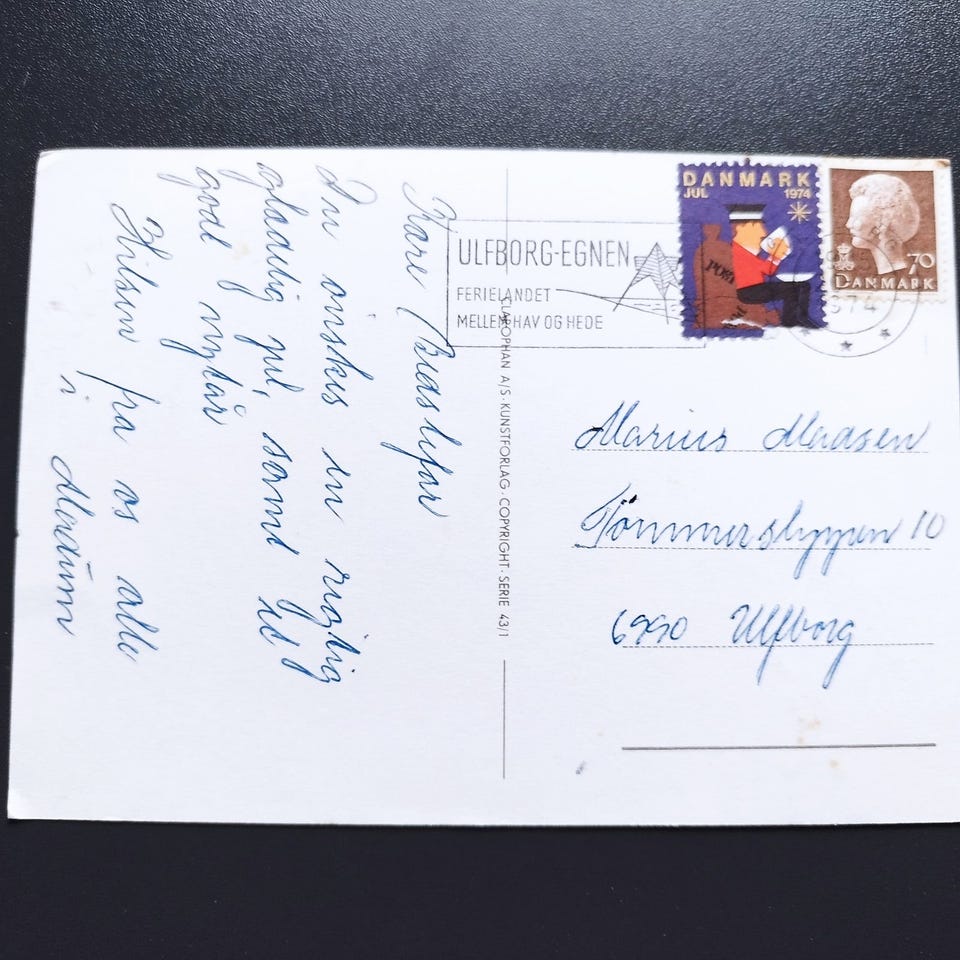 Kære Bedstefar
Du ønskes en rigtig
glædelig jul, samt et
godt nytår
Hilsen fra os alle
i Madum
CLAROPHAN A/S · KUNSTFORLAG · COPYRIGHT · SERIE 43/1
ULFBORG-EGNEN
FERIELANDET
MELLEM HAV OG HEDE
DANMARK
JUL 1974
POST
70
DANMARK
Marius Madsen
Tømmerslyppen 10
6990 Ulfborg